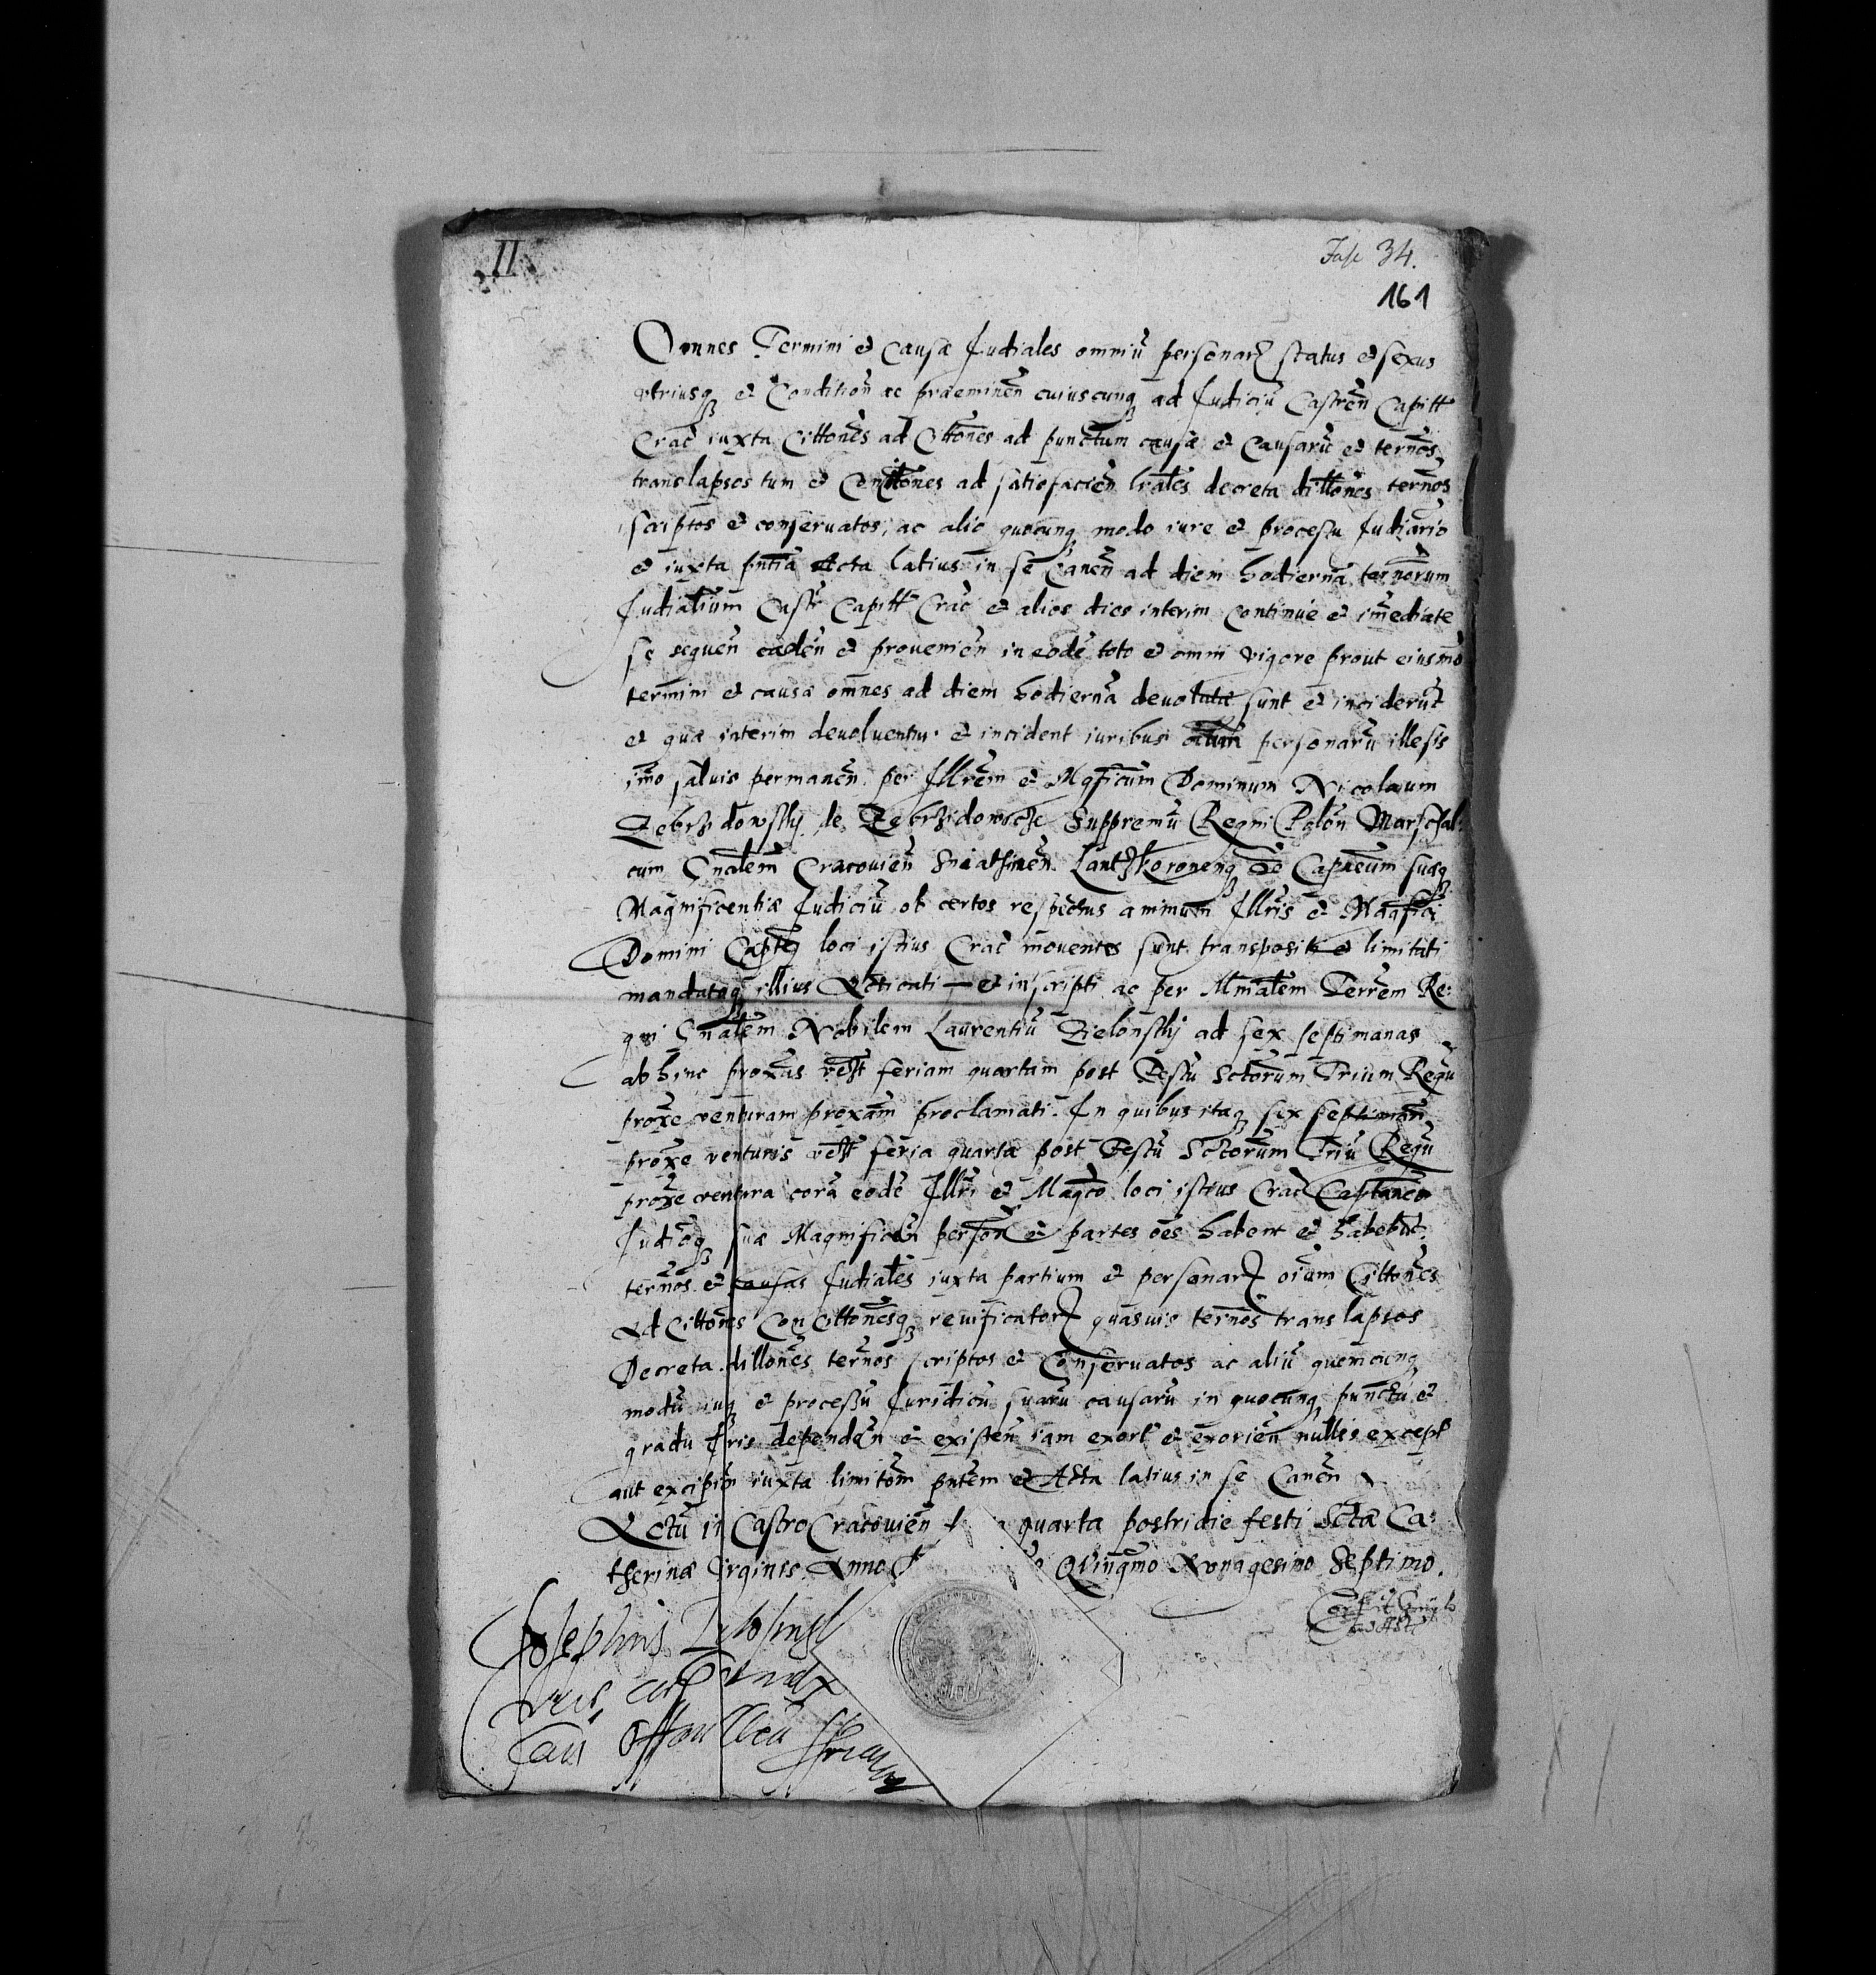 II
Fasc 34.
161
Omnes Termini et Causæ Judiales omniũ personarꝝ status et sexus
vtriusqꝫ et Condition̄ ac præeminen̄ cuiuscunqꝫ ad Judiciũ Castren̄ Capitt
Crac̄ iuxta Citto͠nes ad Citto͠nes ad punctum causæ et Causarũ et tern̄os
translapsos tum et Con̄tto͠nes ad satisfacien̄ lra͠les decreta dilto͠nes tern̄os
scriptos et conseruatos, ac alio quocunqꝫ modo iure et processu Judiario
et iuxta pn̄tia Acta latius in se Canen̄ ad diem hodiernã tern̄orum
Judialium Castr̄ Capitt Crac̄ et alios dies interim continuè et im̄ediate
se sequen̄ caden̄ et prouenien̄ in eodẽ toto et omni vigore prout eiusm̄o
termini et causæ omnes ad diem hodiernã deuolutæ sunt et inciderũt
et quæ interim deuoluentur et incident iuribus om̄ium personarũ illesis
im̄o saluis permanen̄ per Illre͠m et Mgficum Dominum Nicolaum
Zebrzidowskij de Zebrzidowicze Suppremũ Regni Polon̄ Marschal:
cum Gn̄alem Cracouien̄ Sniathinen̄ Lantzkoronenqꝫ &c Capneum suæqꝫ
Magnificentiæ Judiciũ ob certos respectus animum Illr̄is et Magfici
Domini Captej loci istius Crac̄ mouentes sunt transpositi et limitati
mandatoqꝫ illius Acticati — et inscripti ac per Mni͠alem Terre͠m Re:
gni Gn̄alem Nobilem Laurentiũ Zielonskij ad sex septimanas
abhinc prox̄as vel͠t feriam quartam post Festũ Sctorum Trium Regũ
prox̄e venturam prox̄am proclamati. In quibus itaqꝫ sex septiman̄
prox̄e venturis vel͠t feria quarta post Festũ Sctorum Triũ Regũ
prox̄e ventura corã eodẽ Illri et Magco loci istius Crac̄ Captaneo
Judioqꝫ suæ Magnificen̄ person̄ et partes oe͠s habent et habebũt
tern̄os et causas Judiales iuxta partium et personarꝝ oi͠um Citto͠nes
Ad Citto͠nes Con Citto͠nesqꝫ reuificatorꝝ quasuis tern̄os translapsos
Decreta dillo͠nes tern̄os scriptos et Conseruatos ac aliũ quemcunqꝫ
modũ iuqꝫ et processũ Juridicũ suarũ causarũ in quocunqꝫ punctu et
gradu Jris dependen̄ et existen̄ iam exort et exorien̄ nullis except
aut excipien̄ iuxta limito͠m pn̄tem et Acta latius in se Canen̄
Actũ in Castro Cracouien̄ f a quarta postridie festi Sctæ Ca:
therinæ Virginis Anno o Qvingm̄o Nonagesimo Septimo.